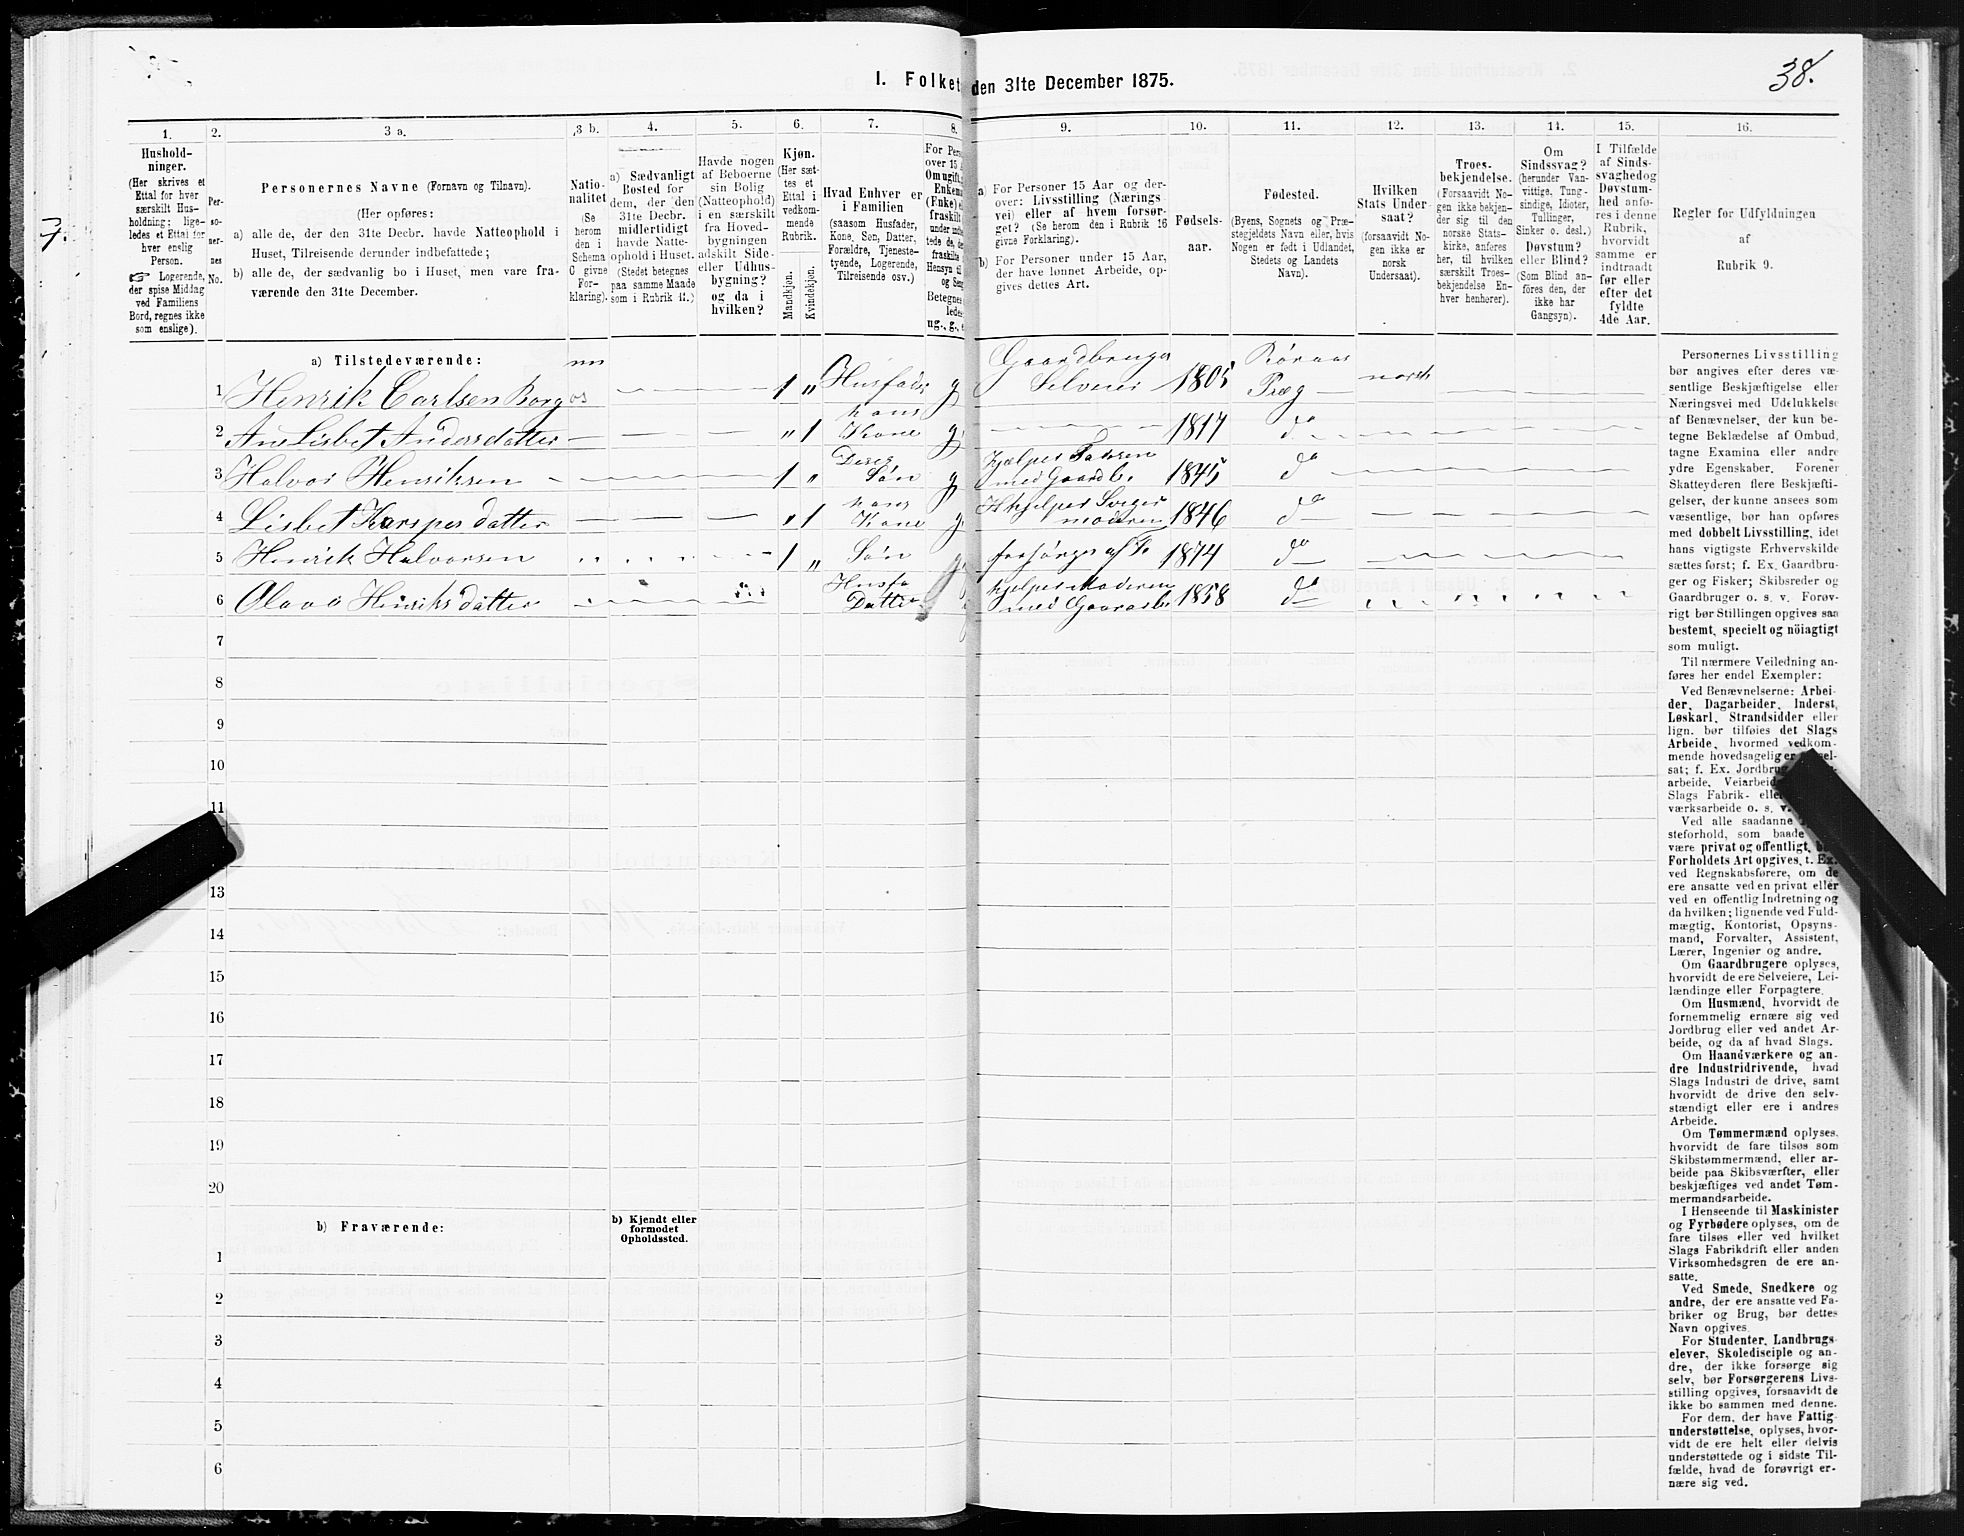 38.
7.
I. Folket den 31te December 1875.
1. 2. 3 a. 3 b. 4. 5. 6. 7. 8. 9. 10. 11. 12. 13. 14. 15. 16.
Hushold-
ninger.
(Her skrives et
Ettal for hver
særskilt Hus-
holdning; lige-
ledes et Ettal for
hver enslig
Person.
☞ Logerende,
der spise Middag
ved Familiens
Bord, regnes ikke
som enslige).
Per-
so-
ner-
nes
No.
Personernes Navne (Fornavn og Tilnavn).
(Her opføres:
a) alle de, der den 31te Decbr. havde Natteophold i
Huset, Tilreisende derunder indbefattede;
b) alle de, der sædvanlig bo i Huset, men vare fra-
værende den 31te December.
Natio-
nalitet
(Se
herom
den i
Schema
C givne
For-
klaring).
a) Sædvanligt
Bosted for
dem, der den
31te Decbr.
midlertidigt
havde Natte-
ophold i Huset.
(Stedet betegnes
paa samme Maade
som i Rubrik 11.)
Havde nogen
af Beboerne
sin Bolig
(Natteophold)
i en særskilt
fra Hoved-
bygningen
adskilt Side-
eller Udhus-
bygning?
og da i
hvilken?
Kjøn.
(Her sæt-
tes et
Ettal i
vedkom-
mende
Rubrik.
Mandkjøn.
Kvindekjøn.
Hvad Enhver er
i Familien
(saasom Husfader,
Kone, Søn, Datter,
Forældre, Tjeneste-
tyende, Logerende,
Tilreisende osv.)
For Pers
over 15 A
Om ugift,
Enkema
(Enke) e
fraskilt
under indb
tede de, de
fraskilte
Hensyn til
og Sen
Betegnes
ledes
ug., g., e
a) For Personer 15 Aar og der-
over: Livsstilling (Nærings-
vei) eller af hvem forsør-
get? (Se herom den i Rubrik 16
givne Forklaring).
b) For Personer under 15 Aar,
der have lønnet Arbeide, op-
gives dettes Art.
Fødsels-
aar.
Fødested.
(Byens, Sognets og Præ-
stegjeldets Navn eller, hvis
Nogen er født i Udlandet,
Stedets og Landets
Navn).
Hvilken
Stats Under-
saat?
(forsaavidt No-
gen ikke er
norsk
Undersaat).
Troes-
bekjendelse.
(Forsaavidt No-
gen ikke bekjen-
der sig til den
norske Stats-
kirke, anføres
her, til hvilken
særskilt Troes-
bekjendelse En-
hver henhører).
Om
Sindssvag?
(herunder Van-
vittige, Tung-
sindige, Idioter,
Tullinger,
Sinker o. desl.)
Døvstum?
eller Blind?
(Som Blind an-
føres den, der
ikke har
Gangsyn).
I Tilfælde
af Sinds-
svaghed og
Døvstum-
hed anfø-
res i denne
Rubrik,
hvorvidt
samme er
indtraadt
før eller
efter det
fyldte
4de Aar.
Regler for Udfyldningen
af
Rubrik 9.
a) Tilstedeværende:
1 Henrik Carlsen Borgos nn 1 „ Husfader g Gaardbruger Selveier 1805 Røraas Præg norsk
2 Ane Lisbet Andersdatter „ 1 hans Kone g 1817 do
3 Halvor Henriksen 1 „ Deres Søn g Hjelper Faderen med Gaardb. 1845 do
4 Lisbet Kaspersdatter „ 1 hans Kone g Hjelper Sviger moderen 1846 do
5 Henrik Halvorsen 1 „ Søn forsørges af F. 1874 do
6 Henriksdatter Husfa Datter hjelper Moderen med Gaardsb. 1858 do
7
8
9
10
11
13
14
15
16
17
18
19
20
b) Fraværende:
b) Kjendt eller
formodet
Opholdssted.
1
2
3
4
5
6
Personernes Livsstilling
bør angives efter deres væ-
sentlige Beskjæftigelse eller
Næringsvei med Udelukkelse
af Benævnelser, der kun be-
tegne Beklædelse af Ombud,
tagne Examina eller andre
ydre Egenskaber. Forener
Skatteyderen flere Beskjæfti-
gelser, der kunne ansees som
væsentlige, bør han opføres
med dobbelt Livsstilling, idet
hans vigtigste Erhvervskilde
sættes først; f. Ex. Gaardbru-
ger og Fisker; Skibsreder og
Gaardbruger o. s. v. Forøv-
rigt bør Stillingen opgives saa
bestemt, specielt og nöiagtigt
som muligt.
Til nærmere Veiledning an-
føres her endel Exempler:
Ved Benævnelserne: Arbei-
der, Dagarbeider, Inderst,
Løskarl, Strandsidder eller
lign. bør tilføies det Slags
Arbeide, hvormed vedkom-
mende hovedsagelig er
sat; f. Ex. Jordbru
arbeide, Veiarbeid
Slags Fabrik- elle
værksarbeide o. s. v.
Ved alle saadanne
steforhold, som baade
være privat og offentligt,
Forholdets Art opgives, t. Ex.
ved Regnskabsførere, om de
ere ansatte ved en privat eller
ved en offentlig Indretning og
da hvilken; lignende ved Fuld-
mægtig, Kontorist, Opsyns-
mand, Forvalter, Assistent,
Lærer, Ingeniør og andre.
Om Gaardbrugere oplyses,
hvorvidt de ere Selveiere, Lei-
lændinge eller Forpagtere.
Om Husmænd, hvorvidt de
fornemmelig ernære sig ved
Jordbrug eller ved andet Ar-
beide, og da af hvad Slags.
Om Haandværkere og an-
dre Industridrivende, hvad
Slags Industri de drive, samt
hvorvidt de drive den selv-
stændigt eller ere i andres
Arbeide.
Om Tømmermænd oplyses,
hvorvidt de fare tilsøs som
Skibstømmermænd, eller ar-
beide paa Skibsværfter, eller
beskjæftiges ved andet Tøm-
mermandsarbeide.
I Henseende til Maskinister
og Fyrbødere oplyses, om de
fare tilsøs eller ved hvilket
Slags Fabrikdrift eller anden
Virksomhedsgren de ere an-
satte.
Ved Smede, Snedkere og
andre, der ere ansatte ved Fa-
briker og Brug, bør dettes
Navn opgives.
For Studenter, Landbrugs-
elever, Skoledisciple og an-
dre, der ikke forsørge sig
selv, bør Forsørgerens Livs-
stilling opgives, forsaavidt de
ikke bo sammen med denne.
For dem, der have Fattig-
understøttelse, oplyses, hvor-
vidt de ere helt eller delvis
understøttede og i sidste Til-
fælde, hvad de forøvrigt er-
nære sig ved.